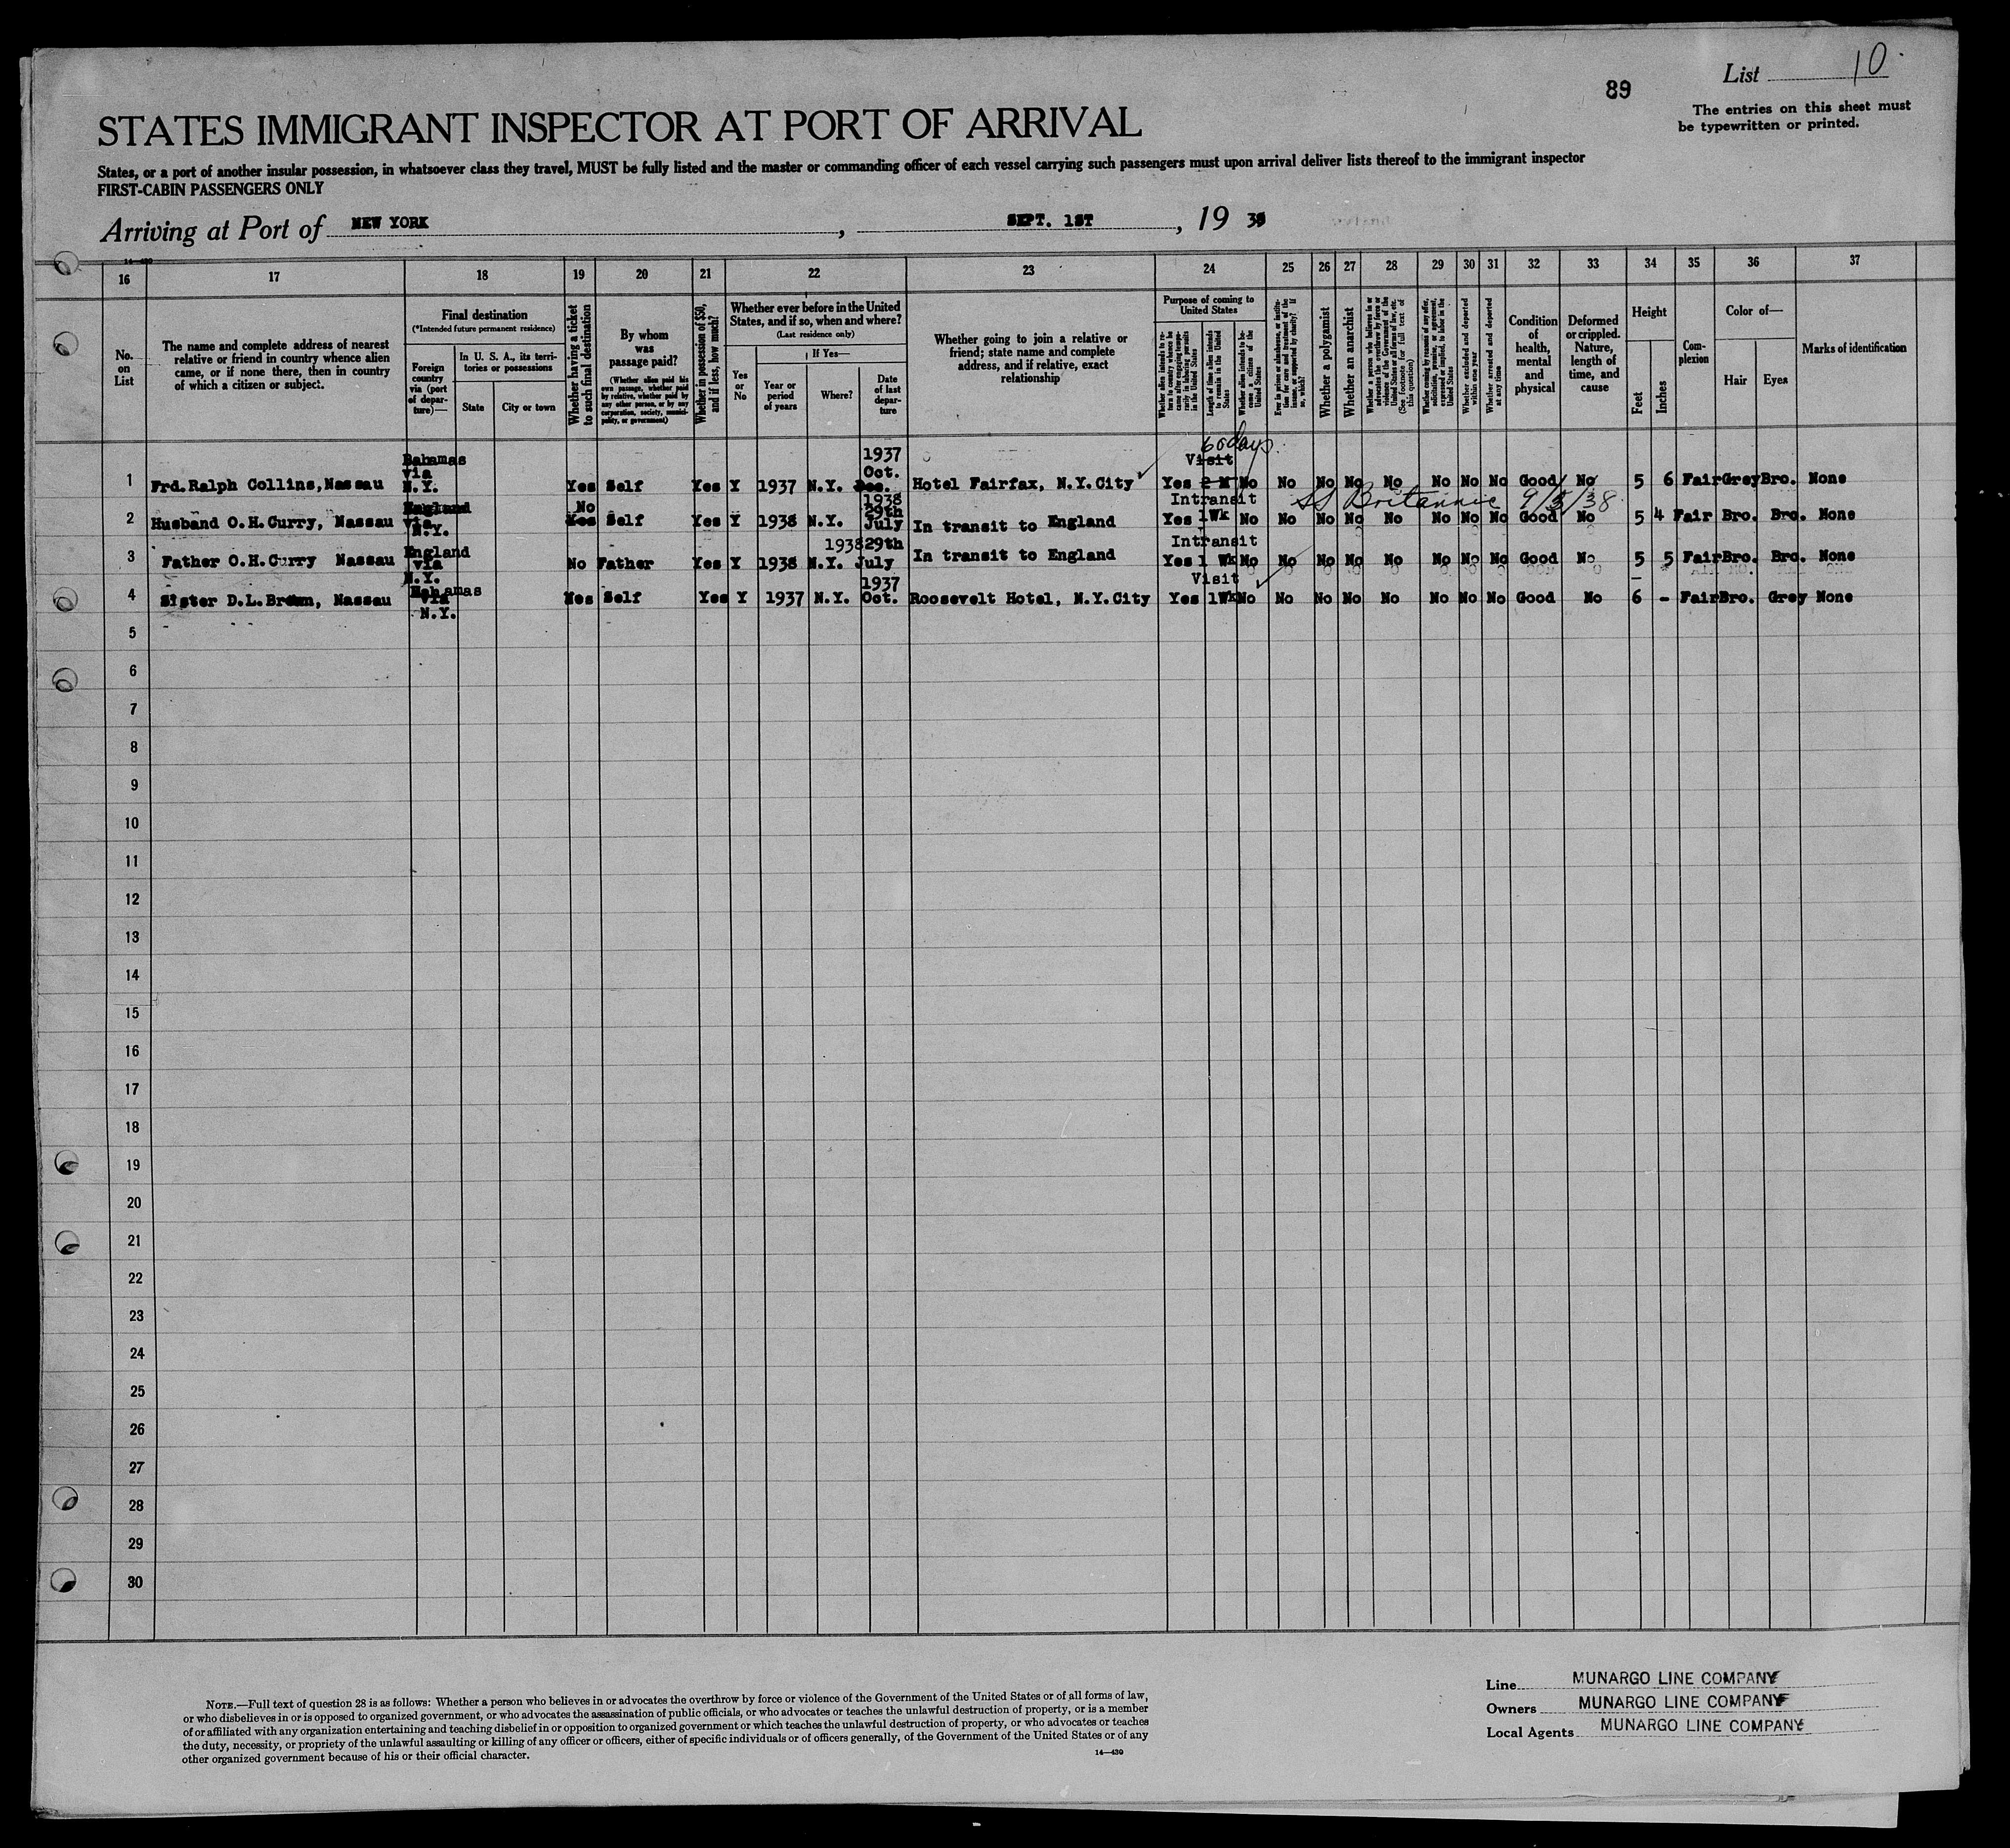 List 10
89
The entries on this sheet must
be typewritten or printed.
STATES IMMIGRANT INSPECTOR AT PORT OF ARRIVAL
States, or a port of another insular possession, in whatsoever class they travel, MUST be fully listed and the master or commanding officer of each vessel carrying such passengers must upon arrival deliver lists thereof to the immigrant inspector
FIRST-CABIN PASSENGERS ONLY
Arriving at Port of NEW YORK, SEPT. 1ST, 19
14—430
16 17 18 19 20 21 22 23 24 25 26 27 28 29 30 31 32 33 34 35 36 37
No. on List
The name and complete address of nearest relative or friend in country whence alien came, or if none there, then in country of which a citizen or subject.
Final destination
(*Intended future permanent residence)
Foreign country via (port of departure)—
In U. S. A., its territories or possessions
State
City or town
Whether having a ticket to such final destination
By whom was passage paid?
(Whether alien paid his own passage, whether paid by relative, whether paid by any other person, or by any corporation, society, municipality, or government)
Whether in possession of $50, and if less, how much?
Whether ever before in the United States, and if so, when and where?
(Last residence only)
Yes or No
If Yes—
Year or period of years
Where?
Date of last departure
Whether going to join a relative or friend; state name and complete address, and if relative, exact relationship
Purpose of coming to United States
Whether alien intends to return to country whence he came after engaging temporarily in laboring pursuits in the United States
Length of time alien intends to remain in the United States
Whether alien intends to become a citizen of the United States
Ever in prison or almshouse or institution for care and treatment of the insane, or supported by charity? If so, which?
Whether a polygamist
Whether an anarchist
Whether a person who believes in or advocates the overthrow by force or violence of the Government of the United States or all forms of law, etc. (See footnote for full text of this question)
Whether coming by reason of any offer, solicitation, promise, or agreement, expressed or implied, to labor in the United States
Whether excluded and deported within one year
Whether arrested and deported at any time
Condition of health, mental and physical
Deformed or crippled. Nature, length of time, and cause
Height
Feet
Inches
Complexion
Color of—
Hair
Eyes
Marks of identification
1 Frd. Ralph Collins, Nassau Bahamas via N.Y. Yes Self Yes Y 1937 N.Y. 1937 Oct. Dec. Hotel Fairfax, N.Y.City 60 days Visit Yes 2 M No No No No No No No No Good No 5 6 Fair Grey Bro. None
2 Husband O.H.Curry, Nassau England via N.Y. No Yes Self Yes Y 1938 N.Y. 1938 29th July In transit to England Intransit Yes 1 Wk No SS Britannic 9/3/38 No No No No No No No Good No 5 4 Fair Bro. Bro. None
3 Father O.H.Curry Nassau England via N.Y. No Father Yes Y 1938 N.Y. 1938 29th July In transit to England Intransit Yes 1 Wk No No No No No No No No Good No 5 5 Fair Bro. Bro. None
4 Sister D.L.Brown, Nassau Bahamas via N.Y. Yes Self Yes Y 1937 N.Y. 1937 Oct. Roosevelt Hotel, N.Y.City Visit Yes 1Wk No No No No No No No No Good No 6 - Fair Bro. Grey None
5
6
7
8
9
10
11
12
13
14
15
16
17
18
19
20
21
22
23
24
25
26
27
28
29
30
NOTE.—Full text of question 28 is as follows: Whether a person who believes in or advocates the overthrow by force or violence of the Government of the United States or of all forms of law,
or who disbelieves in or is opposed to organized government, or who advocates the assassination of public officials, or who advocates or teaches the unlawful destruction of property, or is a member
of or affiliated with any organization entertaining and teaching disbelief in or opposition to organized government or which teaches the unlawful destruction of property, or who advocates or teaches
the duty, necessity, or propriety of the unlawful assaulting or killing of any officer or officers, either of specific individuals or of officers generally, of the Government of the United States or of any
other organized government because of his or their official character.
14—430
Line MUNARGO LINE COMPANY
Owners MUNARGO LINE COMPANY
Local Agents MUNARGO LINE COMPANY